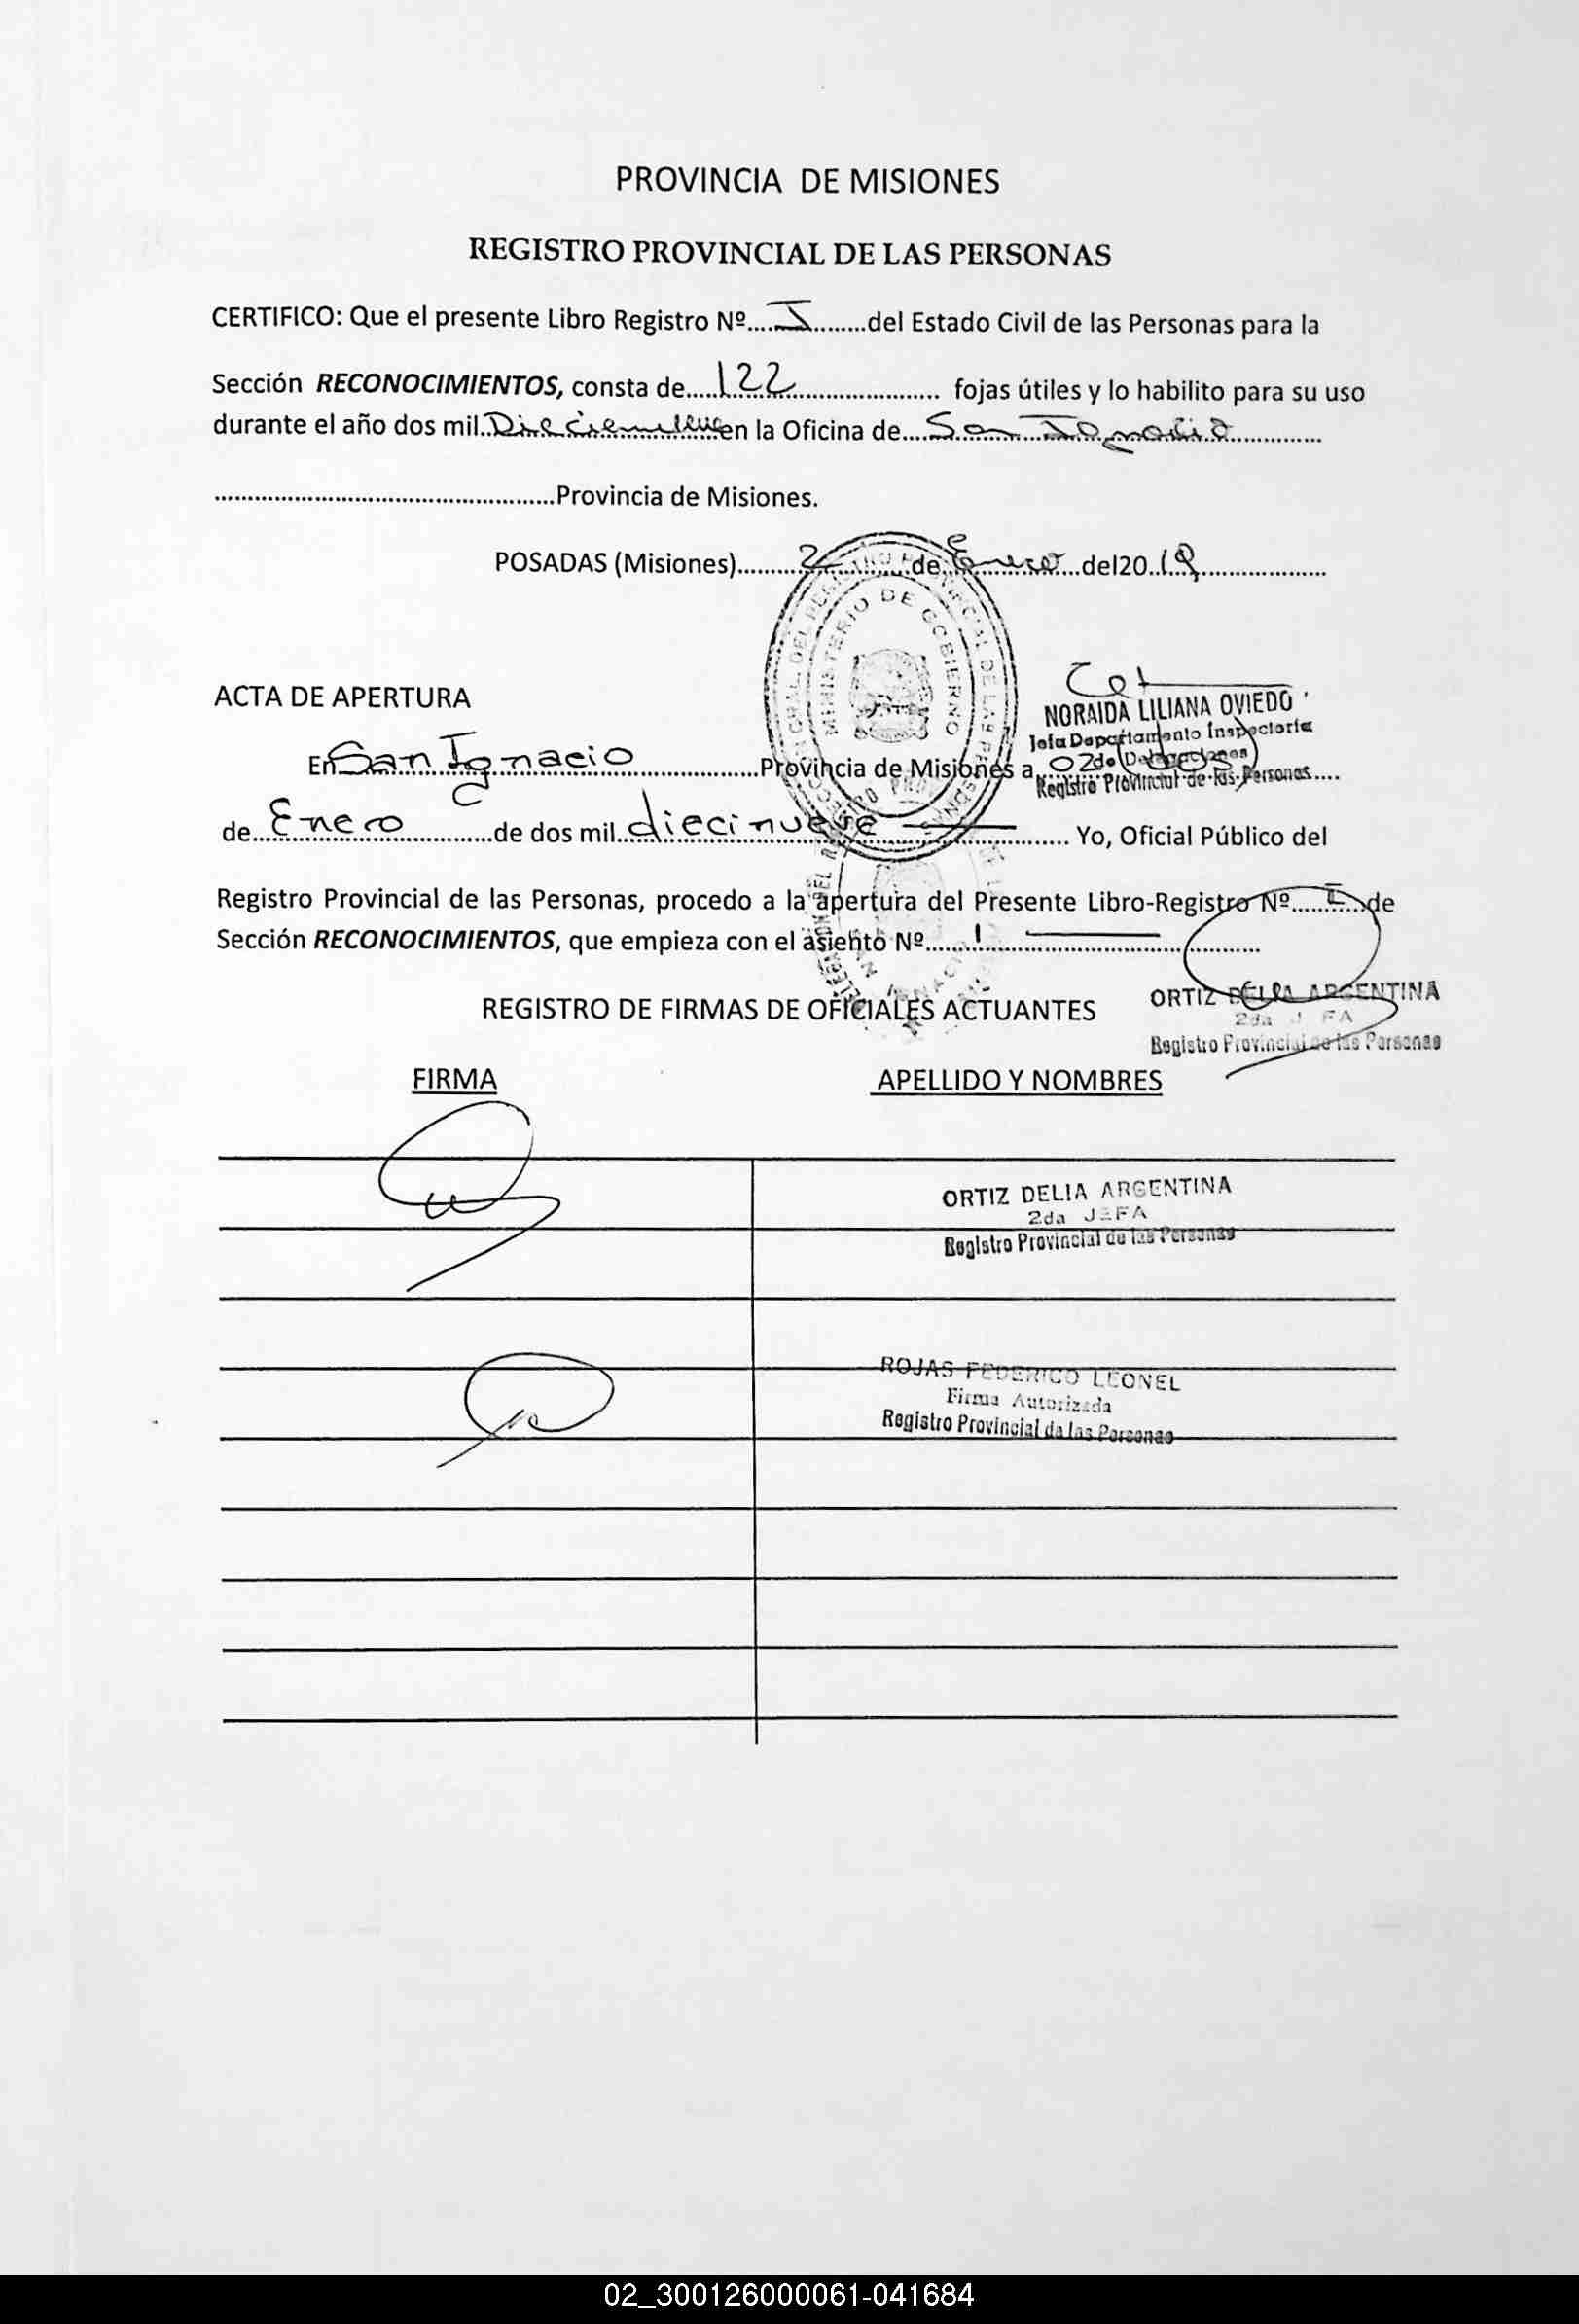 PROVINCIA DE MISIONES
REGISTRO PROVINCIAL DE LAS PERSONAS
CERTIFICO: Que el presente Libro Registro Nº....I.........del Estado Civil de las Personas para la
Sección RECONOCIMIENTOS, consta de.....122...................... fojas útiles y lo habilito para su uso
durante el año dos mil..Diecinueve en la Oficina de....San Ignacio..............
....................................................Provincia de Misiones.
POSADAS (Misiones)..........2.......de..Enero...del20..19....................
MINISTERIO DE GOBIERNO
NORAIDA LILIANA OVIEDO
Jefa Departamento Inspectoría
de Delegaciones
Registro Provincial de las Personas
ACTA DE APERTURA
En San Ignacio...................Provincia de Misiones a 02 dos
de...Enero..............de dos mil..diecinueve.................. Yo, Oficial Público del
Registro Provincial de las Personas, procedo a la apertura del Presente Libro-Registro Nº.....I....de
Sección RECONOCIMIENTOS, que empieza con el asiento Nº.......1.......................................
ORTIZ DELIA ARGENTINA
2da JEFA
Registro Provincial de las Personas
REGISTRO DE FIRMAS DE OFICIALES ACTUANTES
FIRMA APELLIDO Y NOMBRES
ORTIZ DELIA ARGENTINA
2da JEFA
Registro Provincial de las Personas
ROJAS FEDERICO LEONEL
Firma Autorizada
Registro Provincial de las Personas
02_300126000061-041684